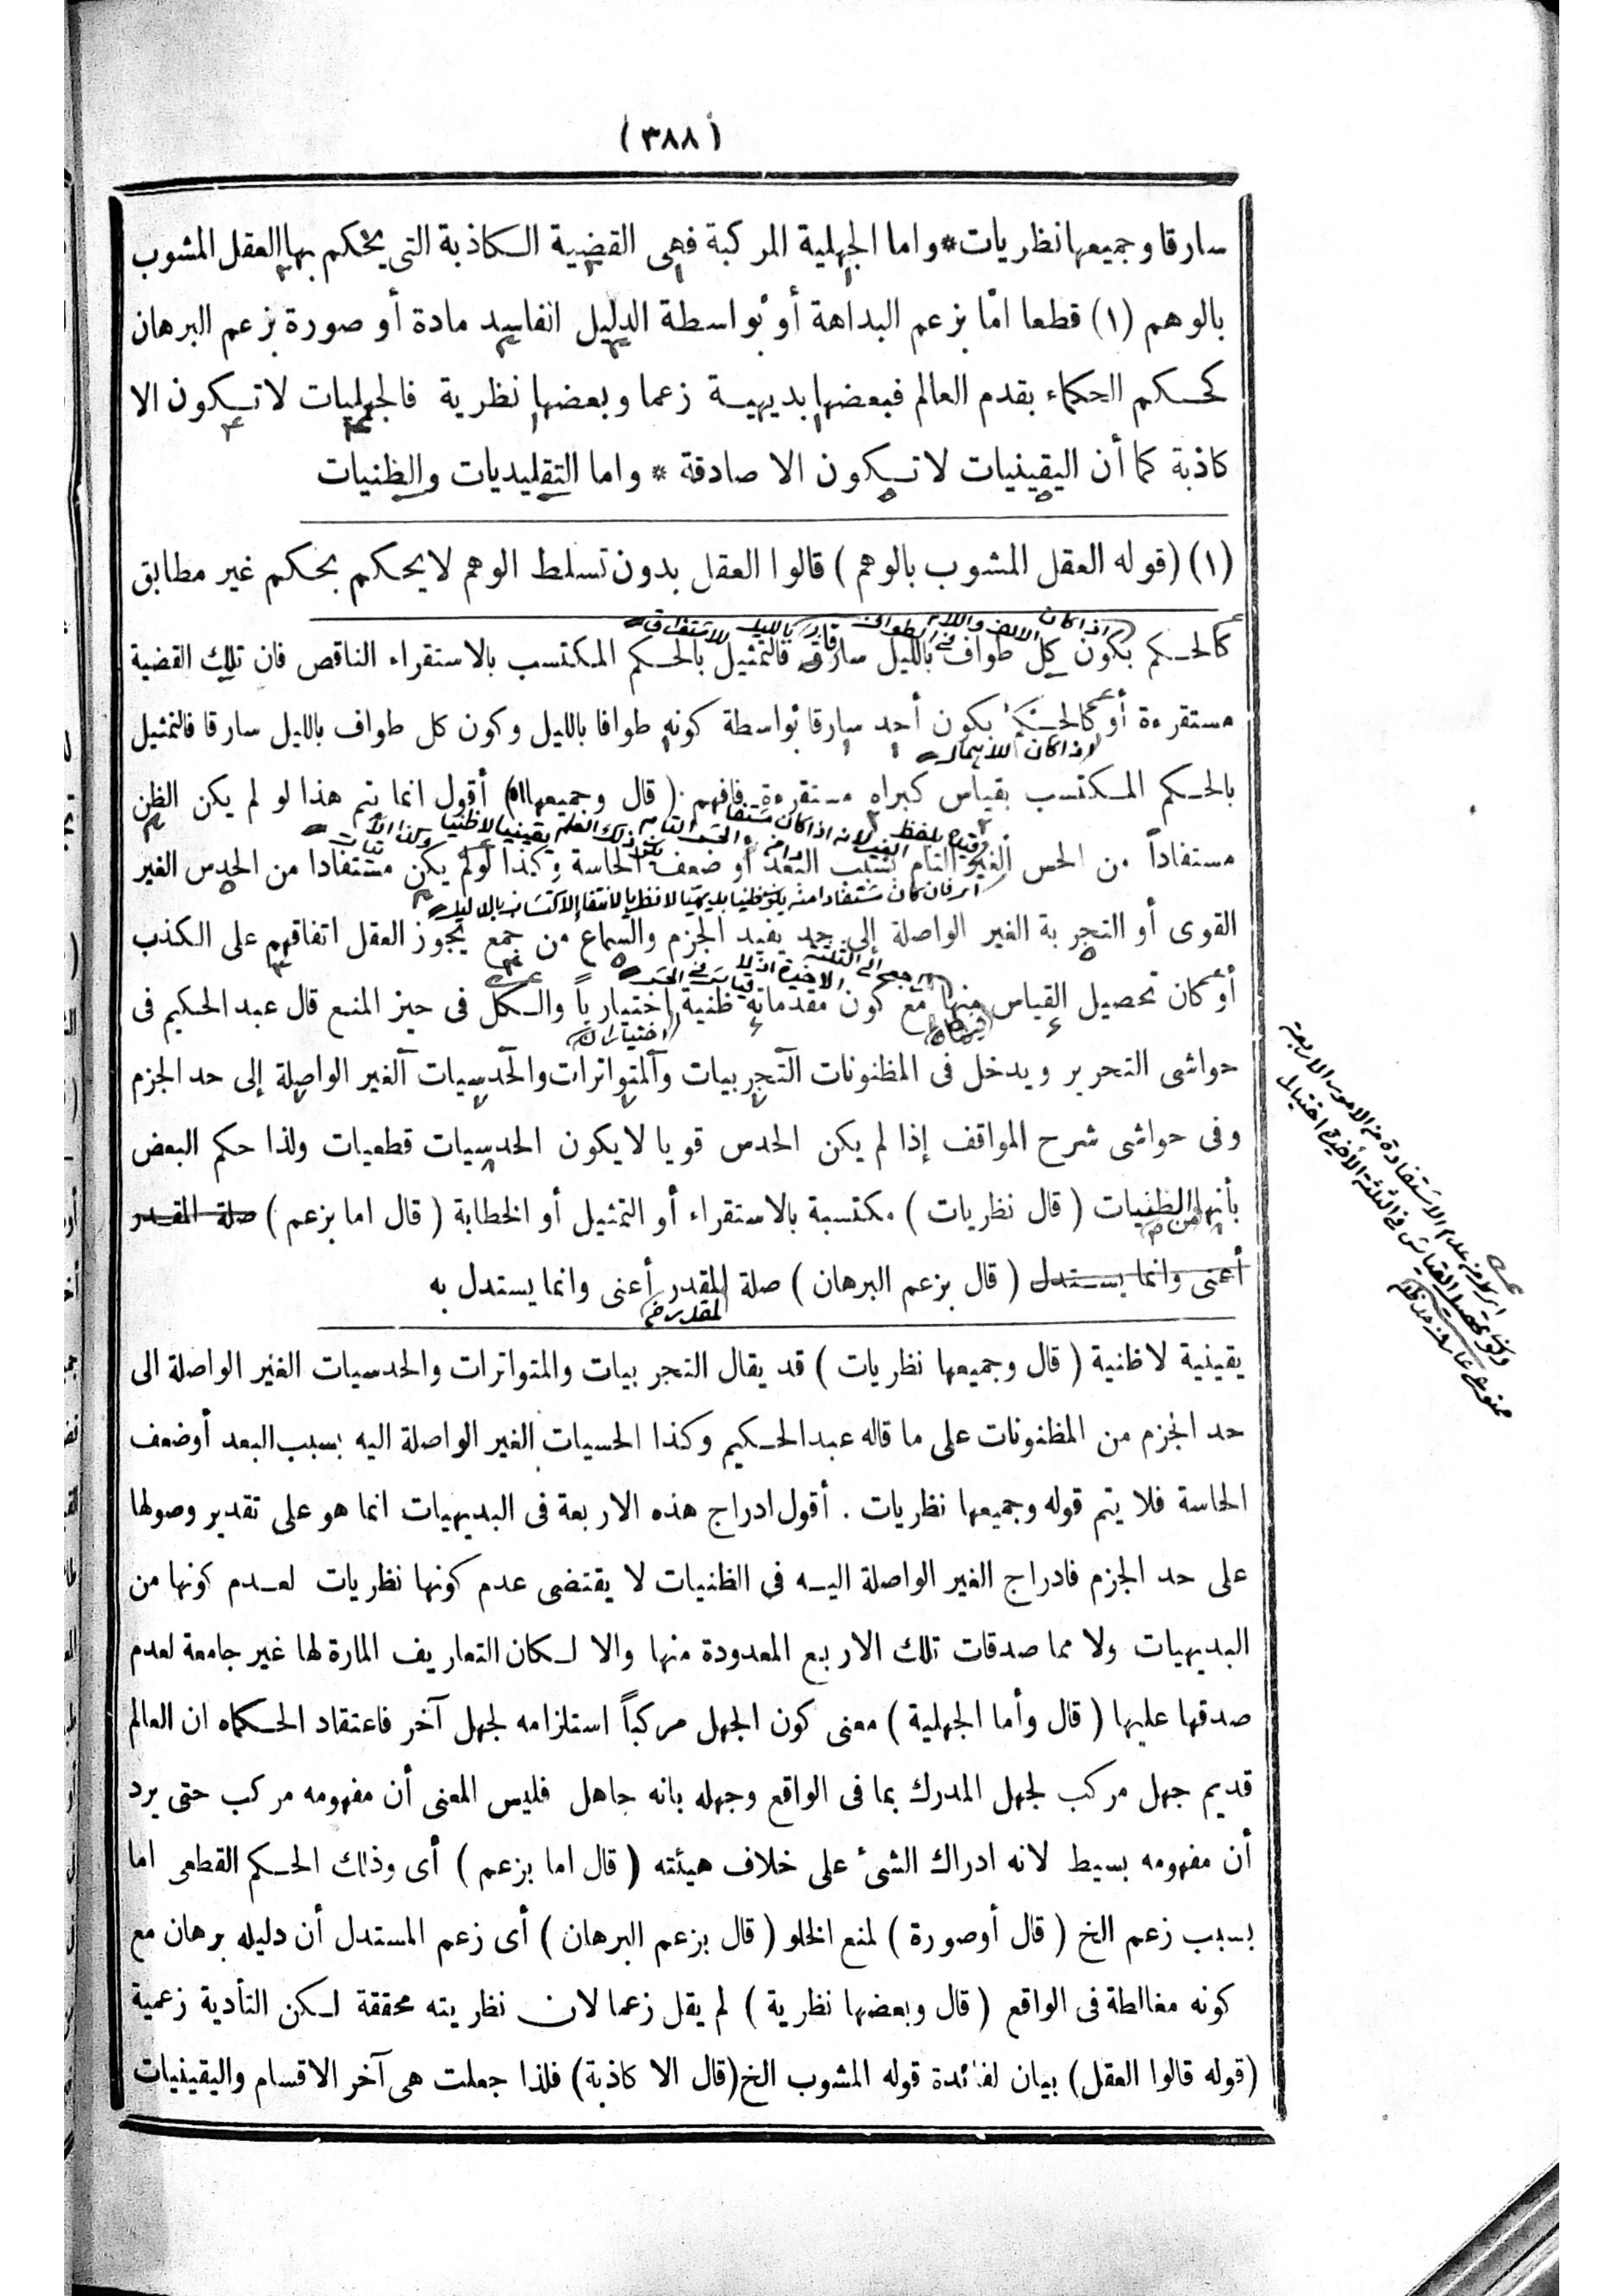 (٣٨٨)
سارقا وجميعها نظريات * واما الجهلية المركبة فهى القضية الكاذبة التى يحكم بها العقل المشوب
بالوهم (١) قطعا امّا بزعم البداهة أو بواسطة الدليل الفاسد مادة أو صورة بزعم البرهان
كحكم الحكماء بقدم العالم فبعضها بديهية زعما وبعضها نظرية فالجهليات لا تكون الا
كاذبة كما أن اليقينيات لا تكون الا صادقة * واما التقليديات والظنيات
(١) (قوله العقل المشوب بالوهم) قالوا العقل بدون تسلط الوهم لا يحكم بحكم غير مطابق
كالحكم بكون كل طواف بالليل سارقا فالتمثيل بالحكم المكتسب بالاستقراء الناقص فان تلك القضية
مستقرءة أو كالحكم بكون أحد سارقا بواسطة كونه طوافا بالليل وكون كل طواف بالليل سارقا فالتمثيل
بالحكم المكتسب بقياس كبراه مستقرءة فافهم . (قال وجميعها اه) أقول انما يتم هذا لو لم يكن الظن
مستفاداً من الحس الغير التام بسبب البعد أو ضعف الحاسة وكذا لو لم يكن مستفادا من الحدس الغير
القوى أو التجربة الغير الواصلة إلى حد يفيد الجزم والسماع من جمع يجوز العقل اتفاقهم على الكذب
أو كان تحصيل القياس منها مع كون مقدماته ظنية اختيارياً والكل فى حيز المنع قال عبد الحكيم فى
حواشى التحرير ويدخل فى المظنونات التجربيات والمتواترات والحدسيات الغير الواصلة إلى حد الجزم
وفى حواشى شرح المواقف إذا لم يكن الحدس قويا لا يكون الحدسيات قطعيات ولذا حكم البعض
بأنها الظنيات (قال نظريات) مكتسبة بالاستقراء أو التمثيل أو الخطابة (قال اما بزعم) صلة المقدر
أعنى وانما يستدل (قال بزعم البرهان) صلة المقدر أعنى وانما يستدل به
يقينية لا ظنية (قال وجميعها نظريات) قد يقال التجربيات والمتواترات والحدسيات الغير الواصلة الى
حد الجزم من المظنونات على ما قاله عبد الحكيم وكذا الحسيات الغير الواصلة اليه بسبب البعد أو ضعف
الحاسة فلا يتم قوله وجميعها نظريات . أقول ادراج هذه الاربعة فى البديهيات انما هو على تقدير وصولها
على حد الجزم فادراج الغير الواصلة اليه فى الظنيات لا يقتضى عدم كونها نظريات لعدم كونها من
البديهيات ولا مما صدقات تلك الاربع المعدودة منها والا لكان التعاريف المارة لها غير جامعة لعدم
صدقها عليها (قال وأما الجهلية) معنى كون الجهل مركباً استلزامه لجهل آخر فاعتقاد الحكماء ان العالم
قديم جهل مركب لجهل المدرك بما فى الواقع وجهله بانه جاهل فليس المعنى أن مفهومه مركب حتى يرد
أن مفهومه بسيط لانه ادراك الشىء على خلاف هيئته (قال اما بزعم) أى وذلك الحكم القطعى اما
بسبب زعم الخ (قال أو صورة) لمنع الخلو (قال بزعم البرهان) أى زعم المستدل أن دليله برهان مع
كونه مغالطة فى الواقع (قال وبعضها نظرية) لم يقل زعما لان نظريته محققة لكن التأدية زعمية
(قوله قالوا العقل) بيان لفائدة قوله المشوب الخ (قال الا كاذبة) فلذا جعلت هى آخر الاقسام واليقينيات